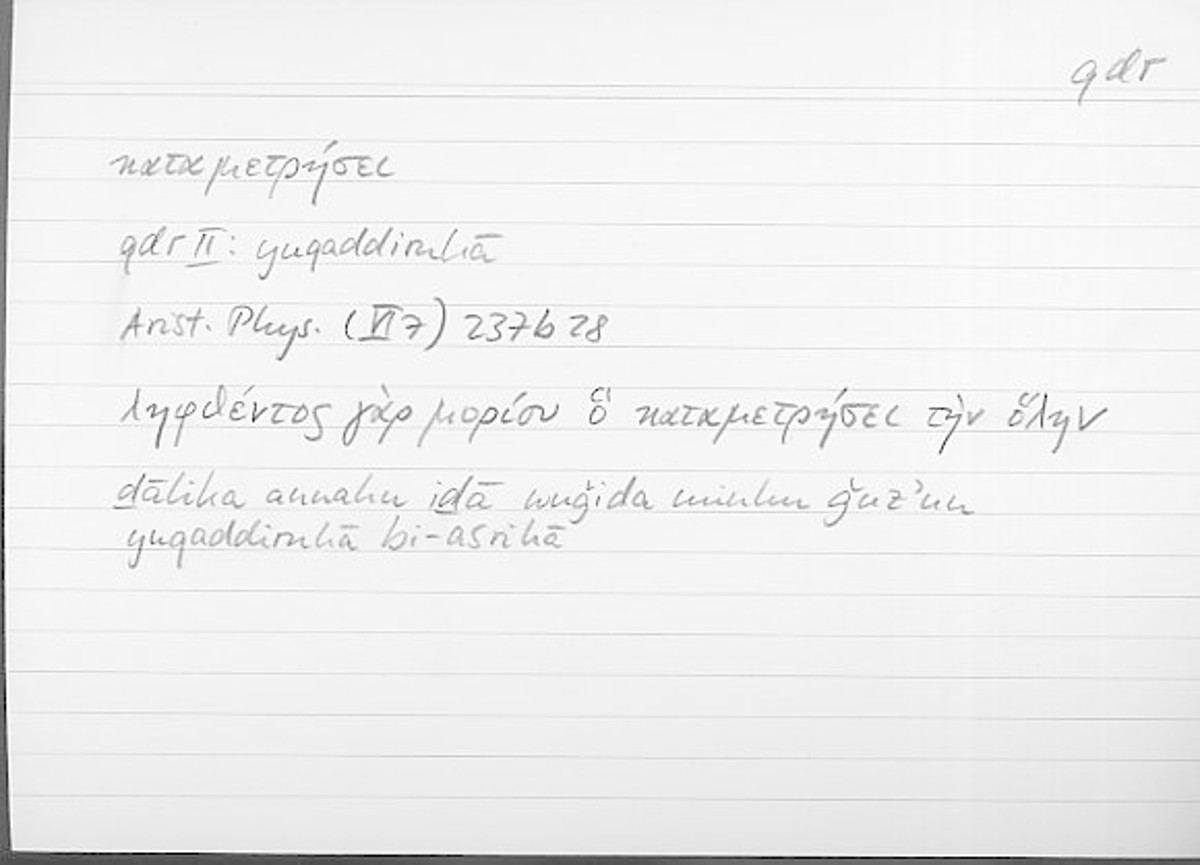 qdr
καταμετρήσει
qdr II: yuqaddiruhā
Arist. Phys. (VI 7) 237b28
ληφθέντος γὰρ μορίου ὃ καταμετρήσει τὴν ὅλην
ḏālika annahu iḏā wuǧida minhu ǧuzʾun
yuqaddiruhā bi-asrihā